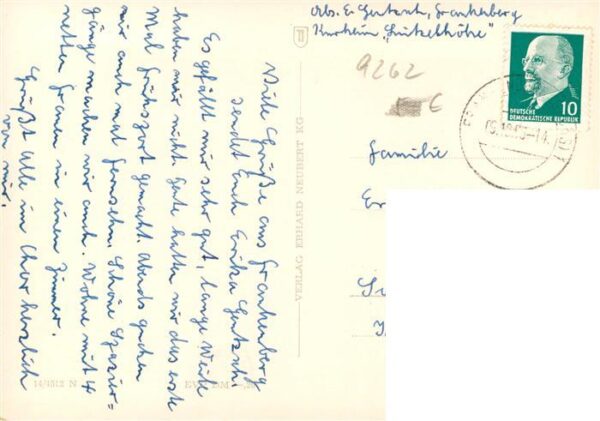 Abs. E. Gertzsch, Frankenberg
Kurheim „Lützelhöhe"
9262
€
DEUTSCHE
DEMOKRATISCHE REPUBLIK
10
Familie
Viele Grüße aus Frankenberg
sendet Euch Erika Gertzsch.
Es gefällt mir sehr gut, lange Weile
haben wir nicht. Heute hatten wir das erste
Mal Frühsport gemacht. Abends gucken
wir auch mal fernsehn. Schöne Spazier=
gänge machen wir auch. Wohne mit 4
netten Frauen in einem Zimmer.
Grüßt alle im Chor herzlich
von mir.
VERLAG ERHARD NEUBERT KG
14/1512 N